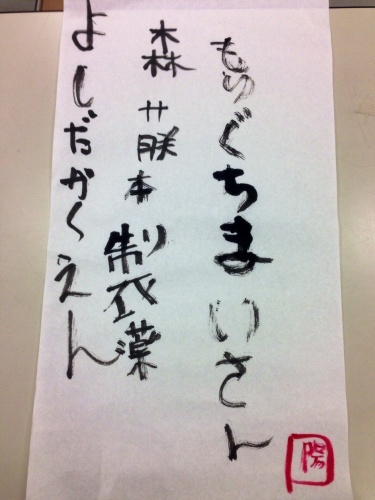 もりぐちまいさん
森 廾朕本 制衣薬
よしだかくえん
陽